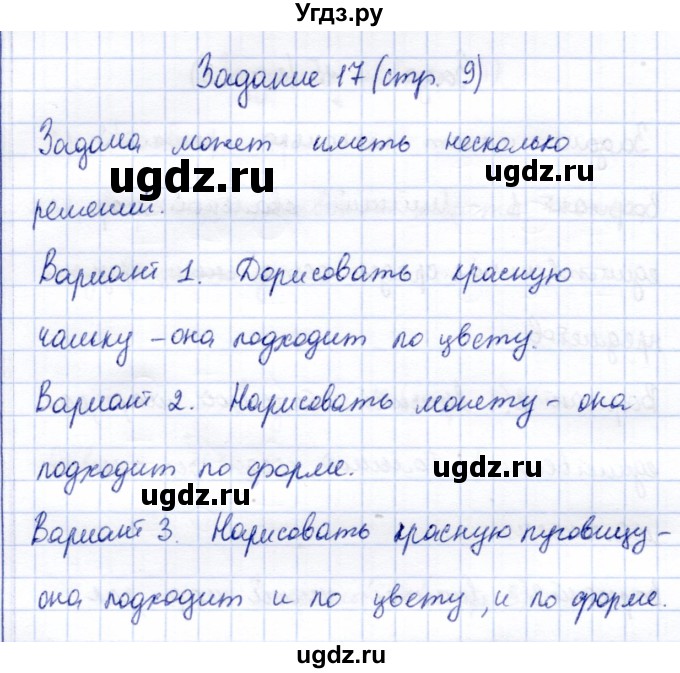 Угдз.ру
Задание 17 (стр. 9)
Задача может иметь несколько
ugdz.ru ugdz.ru
решений.
Вариант 1. Дорисовать красную
чашку – она подходит по цвету.
ugdz.ru
Вариант 2. Нарисовать монету – она
подходит по форме.
ugdz.ru ugdz.ru
Вариант 3. Нарисовать красную пуговицу –
она подходит и по цвету, и по форме.
ugdz.ru